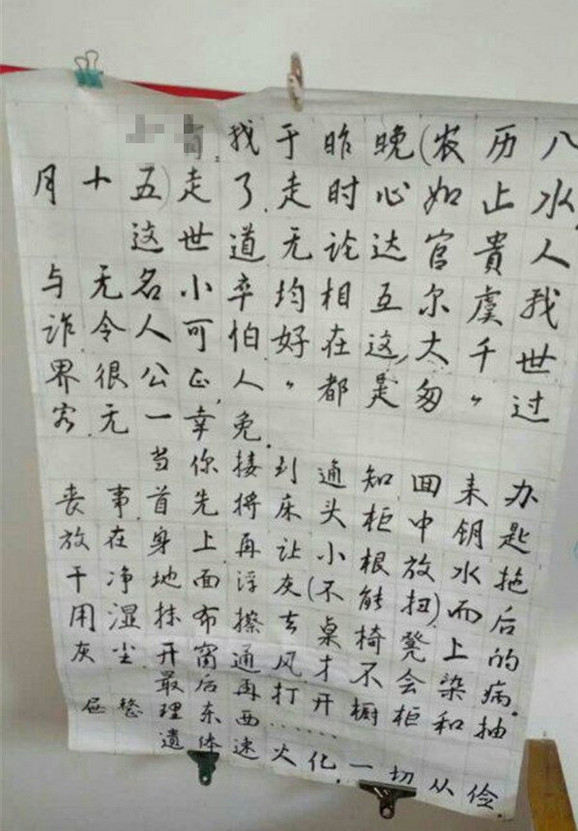 我于昨晚(农历八
月十五)走了.走时心如止水,
这世道无论达官貴人
与无名小卒均相互尔虞我
诈.令人可怕.好在这大千世
界很公正,人〃都是匆〃过
客.无一幸免.
当你接到通知回来办
丧事首先将床头柜中钥匙
放在身上再让小根放水拖
干净地面浮灰(不能扭)而后
用湿抹布擦去桌椅凳上的
灰尘.开窗通风才不会染病.
最后再打开橱柜和抽
屉整理东西......
遗体速火化.一切从俭